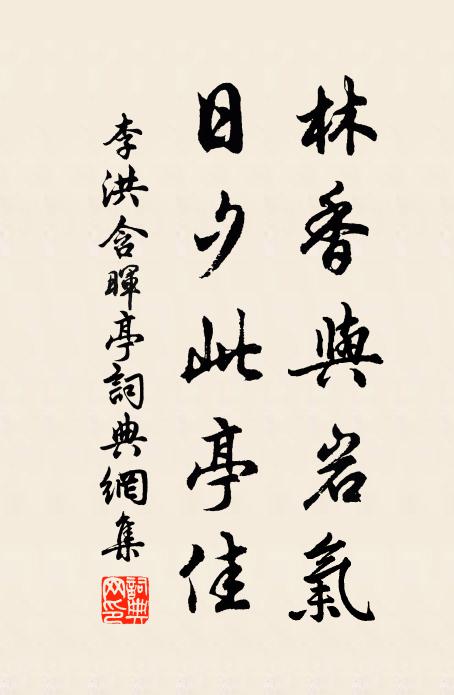 林香與岩氣
日夕此亭佳
李洪含暉亭詞典網集
詞典網印